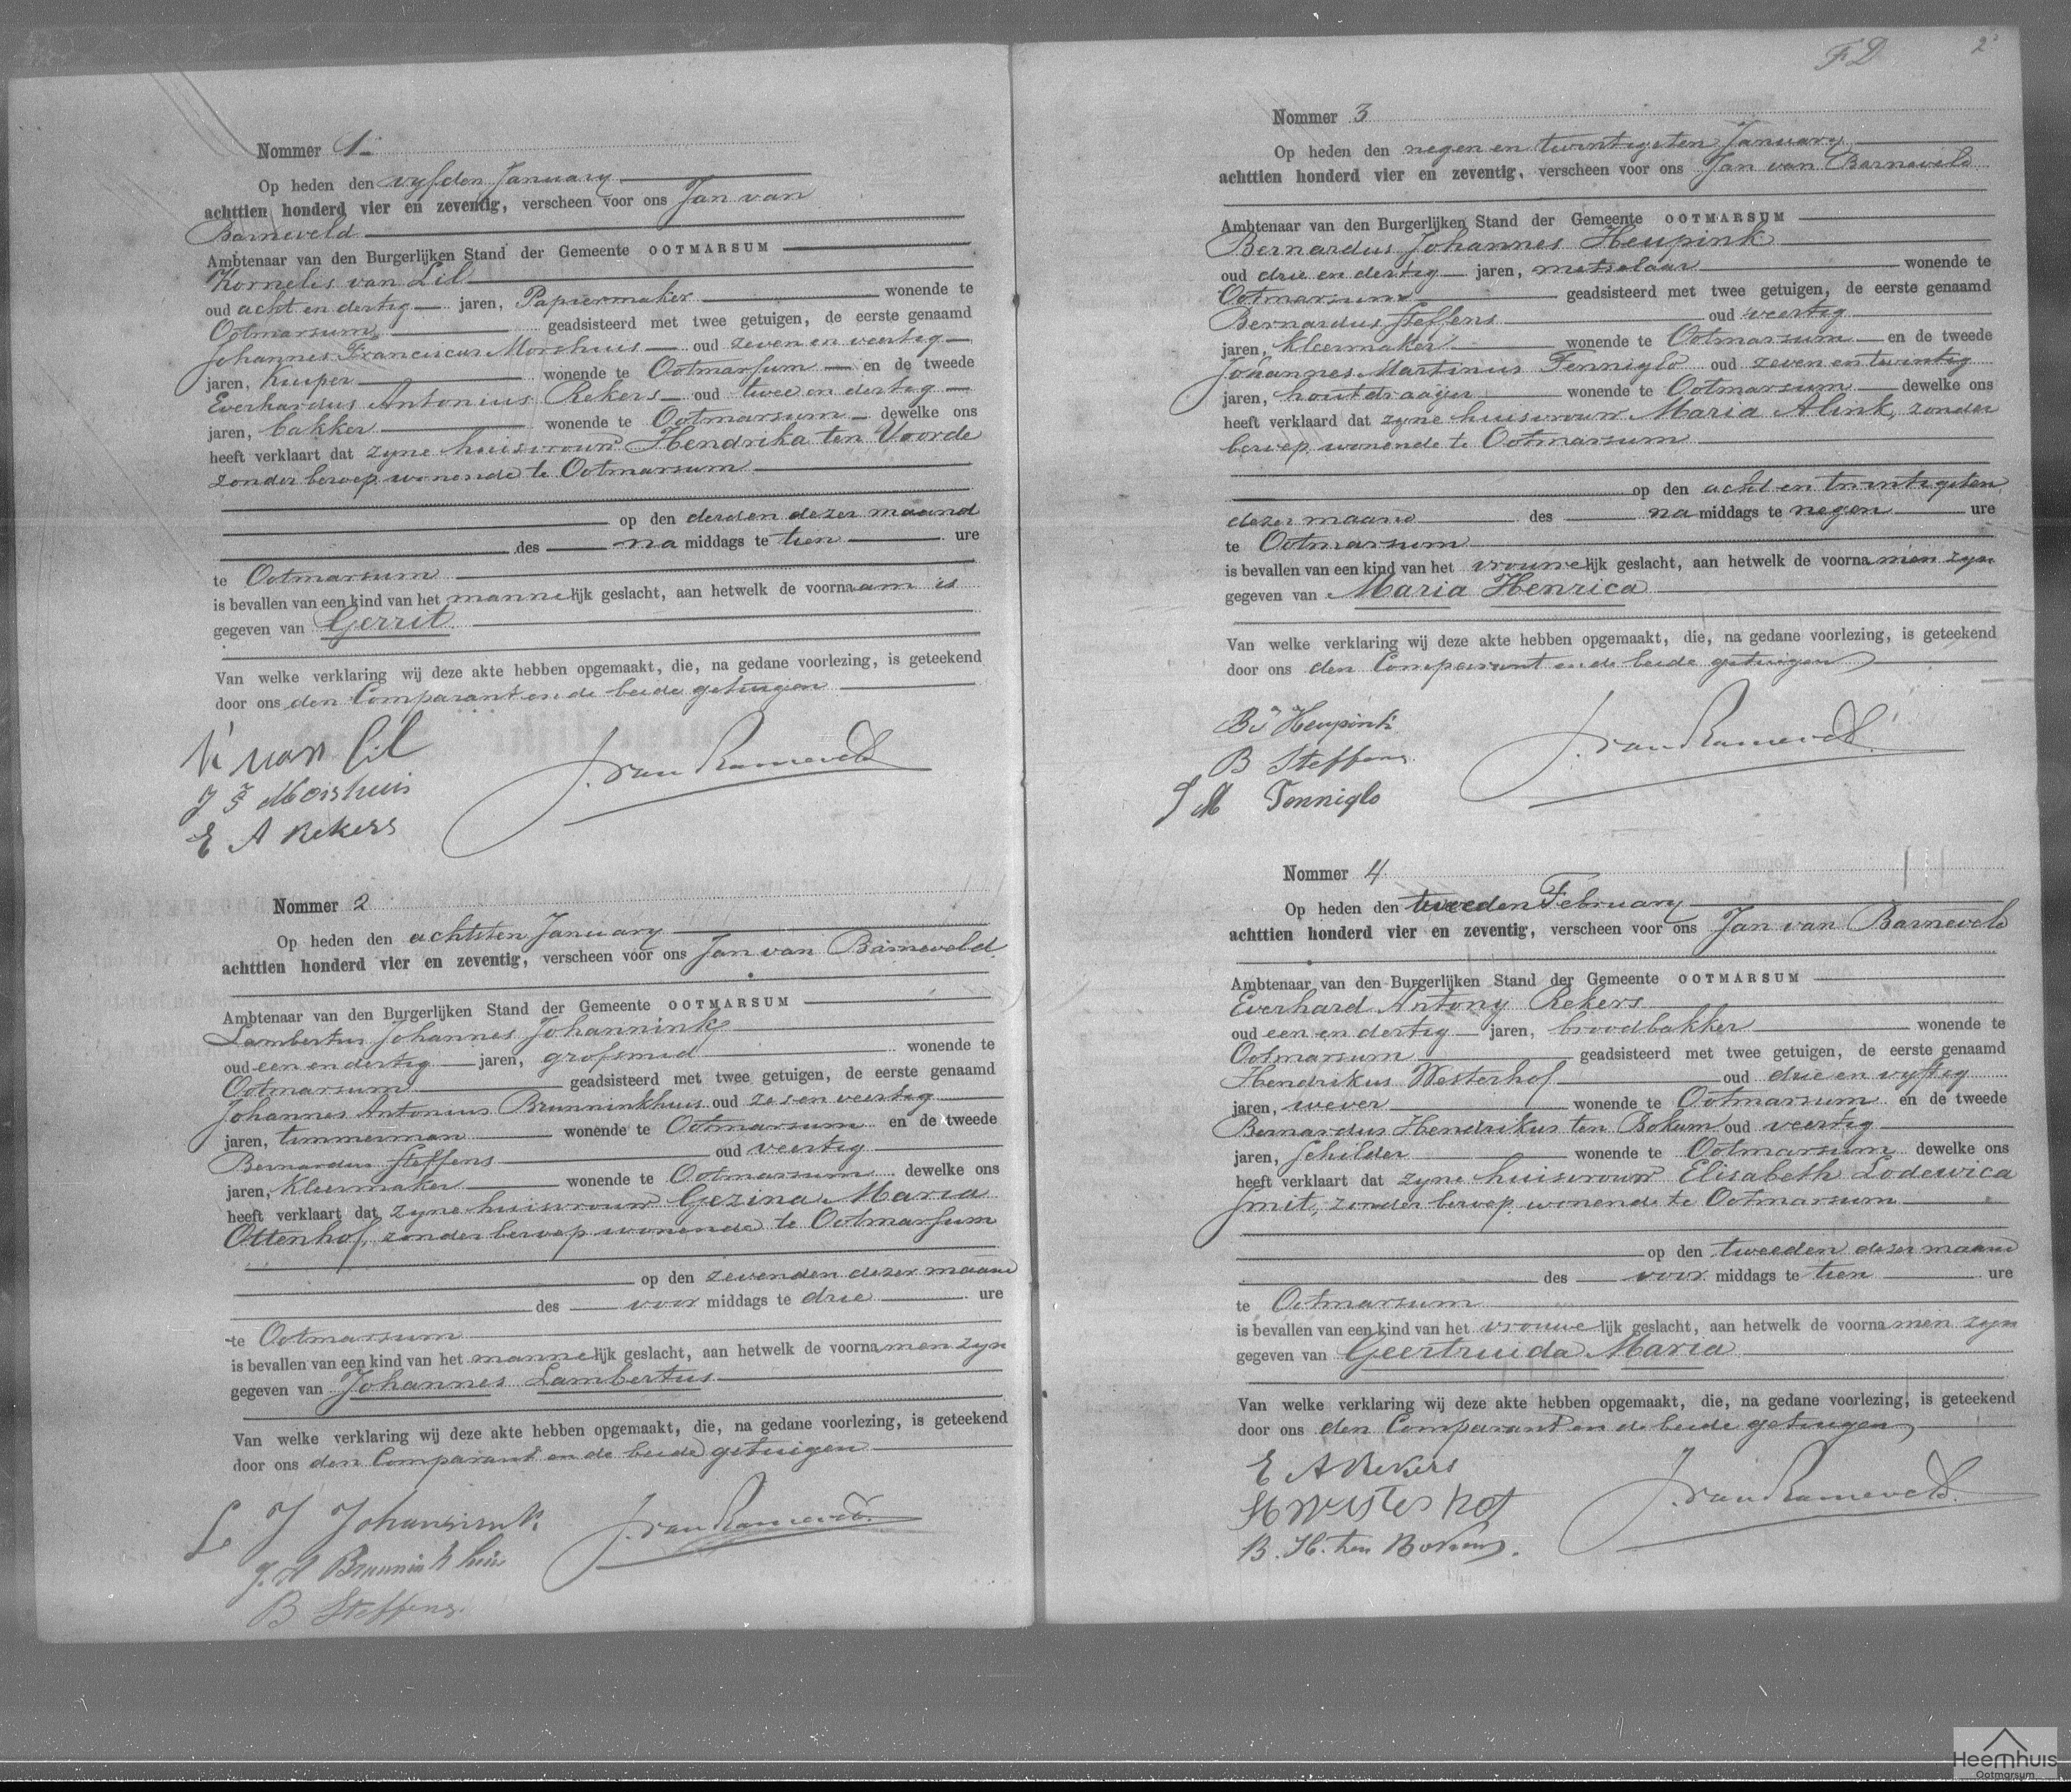 Nommer 1
Op heden den vyfden January
achttien honderd vier en zeventig, verscheen voor ons Jan van
Barneveld
Ambtenaar van den Burgerlijken Stand der Gemeente OOTMARSUM
Kornelis van Lil
oud acht en dertig jaren, Papiermaker wonende te
Ootmarsum geadsisteerd met twee getuigen, de eerste genaamd
Johannes Franciscus Morshuis oud zeven en veertig
jaren, Kuiper wonende te Ootmarsum en de tweede
Everhardus Antonius Rekers oud twee en dertig
jaren, bakker wonende te Ootmarsum dewelke ons
heeft verklaart dat zyne huisvrouw Hendrika ten Voorde
zonder beroep wonende te Ootmarsum
op den derden dezer maand
des na middags te tien ure
te Ootmarsum
is bevallen van een kind van het mannelijk geslacht, aan hetwelk de voornaam is
gegeven van Gerrit
Van welke verklaring wij deze akte hebben opgemaakt, die, na gedane voorlezing, is geteekend
door ons den Comparant en de beide getuigen
K van Lil
J van Barneveld
J F Morshuis
E A Rekers
Nommer 2
Op heden den achtsten January
achttien honderd vier en zeventig, verscheen voor ons Jan van Barneveld
Ambtenaar van den Burgerlijken Stand der Gemeente OOTMARSUM
Lambertus Johannes Johannink
oud een en dertig jaren, grofsmid wonende te
Ootmarsum geadsisteerd met twee getuigen, de eerste genaamd
Johannes Antonius Brunninkhuis oud zes en veertig
jaren, timmerman wonende te Ootmarsum en de tweede
Bernardus Steffens oud veertig
jaren, Kleermaker wonende te Ootmarsum dewelke ons
heeft verklaart dat zyne huisvrouw Gezina Maria
Ottenhof, zonder beroep wonende te Ootmarsum
op den zevenden dezer maand
des voor middags te drie ure
te Ootmarsum
is bevallen van een kind van het mannelijk geslacht, aan hetwelk de voornamen zyn
gegeven van Johannes Lambertus
Van welke verklaring wij deze akte hebben opgemaakt, die, na gedane voorlezing, is geteekend
door ons den Comparant en de beide getuigen
L J Johannink
J. van Barneveld
J. A Brunninkhuis
B Steffens
F D 2
Nommer 3
Op heden den negen en twintigsten January
achttien honderd vier en zeventig, verscheen voor ons Jan van Barneveld
Ambtenaar van den Burgerlijken Stand der Gemeente OOTMARSUM
Bernardus Johannes Heupink
oud drie en dertig jaren, metselaar wonende te
Ootmarsum geadsisteerd met twee getuigen, de eerste genaamd
Bernardus Steffens oud veertig
jaren, Kleermaker wonende te Ootmarsum en de tweede
Johannes Martinus Tenniglo oud zeven en twintig
jaren, houtdraaijer wonende te Ootmarsum dewelke ons
heeft verklaard dat zyne huisvrouw Maria Alink, zonder
beroep wonende te Ootmarsum
op den acht en twintigsten
dezer maand des na middags te negen ure
te Ootmarsum
is bevallen van een kind van het vrouwelijk geslacht, aan hetwelk de voornamen zyn
gegeven van Maria Henrica
Van welke verklaring wij deze akte hebben opgemaakt, die, na gedane voorlezing, is geteekend
door ons den Comparant en de beide getuigen
BJ Heupink
J. van Barneveld
B Steffens
J M Tenniglo
Nommer 4
Op heden den tweeden February
achttien honderd vier en zeventig, verscheen voor ons Jan van Barneveld
Ambtenaar van den Burgerlijken Stand der Gemeente OOTMARSUM
Everhard Antony Rekers
oud een en dertig jaren, broodbakker wonende te
Ootmarsum geadsisteerd met twee getuigen, de eerste genaamd
Hendrikus Westerhof oud drie en vyftig
jaren, wever wonende te Ootmarsum en de tweede
Bernardus Hendrikus ten Bokum oud veertig
jaren, Schilder wonende te Ootmarsum dewelke ons
heeft verklaart dat zyne huisvrouw Elisabeth Lodewica
Smit, zonder beroep wonende te Ootmarsum
op den tweeden dezer maand
des voor middags te tien ure
te Ootmarsum
is bevallen van een kind van het vrouwelijk geslacht, aan hetwelk de voornamen zyn
gegeven van Geertruida Maria
Van welke verklaring wij deze akte hebben opgemaakt, die, na gedane voorlezing, is geteekend
door ons den Comparant en de beide getuigen
E A Rekers
J. van Barneveld.
H Westerhof
B. H. ten Bokum.
Heemhuis
Ootmarsum